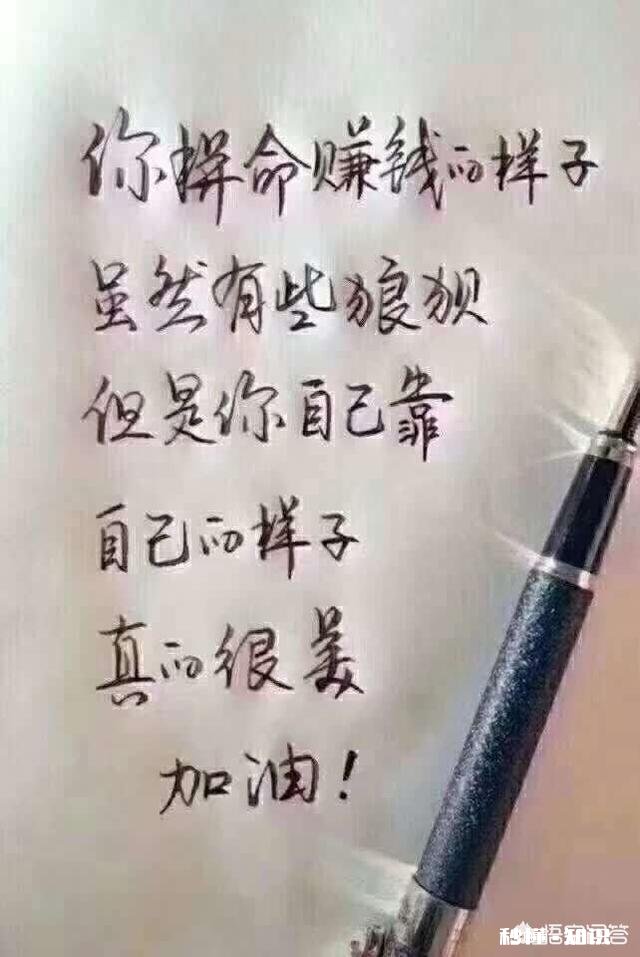 你拼命赚钱的样子
虽然有些狼狈
但是你自己靠
自己的样子
真的很美
加油！
秒懂-知识